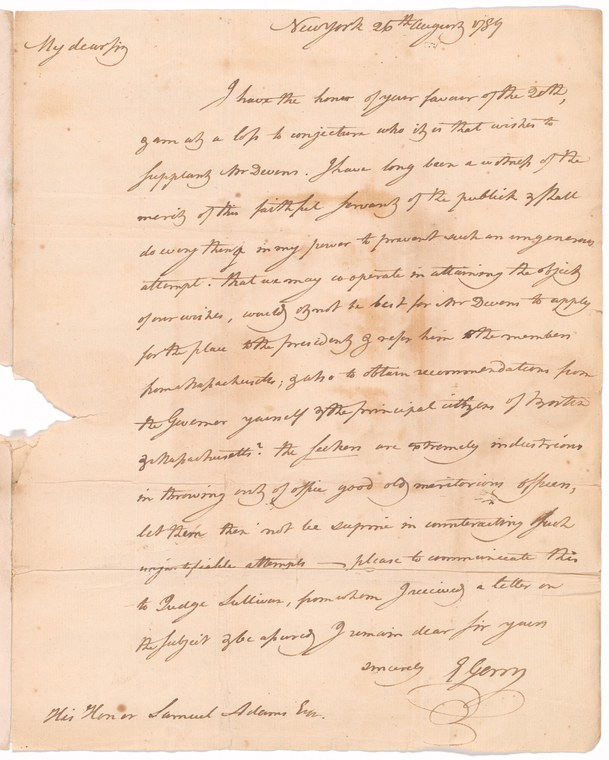 New York 26th August 1789
My dear sir
I have the honor of your favour of the 20th,
& am at a loss to conjecture who it is that wishes to
supplant Mr Devens. I have long been a witness of the
merit of this faithful servant of the publick & shall
do every thing in my power to prevent such an ungenerous
attempt. that we may co operate in attaining the object
of our wishes, would it not be best for Mr Devens to apply
for the place to the president & refer him to the members
from Massachusetts, & also to obtain recommendations from
the Governor yourself & the principal citizens of Boston
& Massachusetts? the seekers are extremely industrious
in throwing out of office good old meritorious officers,
let them then not be supine in counteracting such
unjustifiable attempts — please to communicate this
to Judge Sullivan, from whom I received a letter on
the subject & be assured I remain dear sir yours
sincerely E Gerry
His Honor Samuel Adams Esqr.